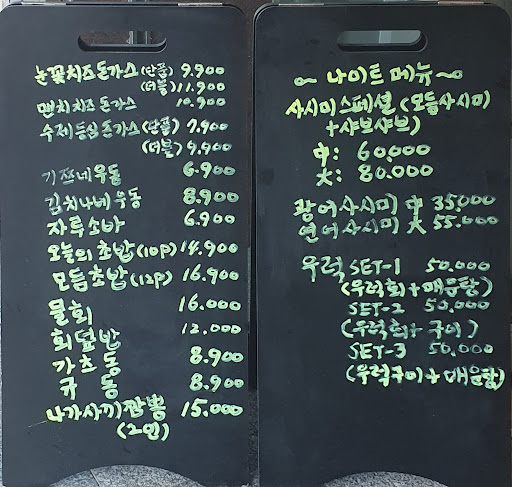 눈꽃치즈돈가스(단품) 9.900
(더블) 11.900
맨치치즈돈가스 10.900
수제등심돈가스(단품) 7.900
(더블) 9.900
기쯔네우동 6.900
김치나베우동 8.900
자루소바 6.900
오늘의초밥(10P) 14.900
모듬초밥(12P) 16.900
물회 16.000
회덮밥 12.000
가츠동 8.900
규동 8.900
나가사끼짬뽕 15.000
(2인)
~ 나이트메뉴 ~
사시미스페셜(모듬사시미
+샤브샤브)
中: 60.000
大: 80.000
광어사시미 中 35.000
연어사시미 大 55.000
우럭 SET-1 50.000
(우럭회+매운탕)
SET-2 50.000
(우럭회+구이)
SET-3 50.000
(우럭구이+매운탕)